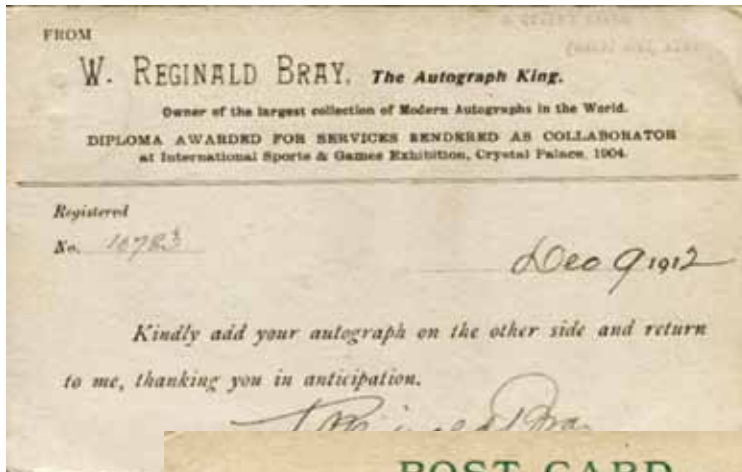 FROM
W. REGINALD BRAY. The Autograph King.
Owner of the largest collection of Modern Autographs in the World.
DIPLOMA AWARDED FOR SERVICES RENDERED AS COLLABORATOR
at International Sports & Games Exhibition, Crystal Palace, 1904.
Registered
No. 10783
Dec 9 1912
Kindly add your autograph on the other side and return
to me, thanking you in anticipation.
Reginald Bray
POST CARD